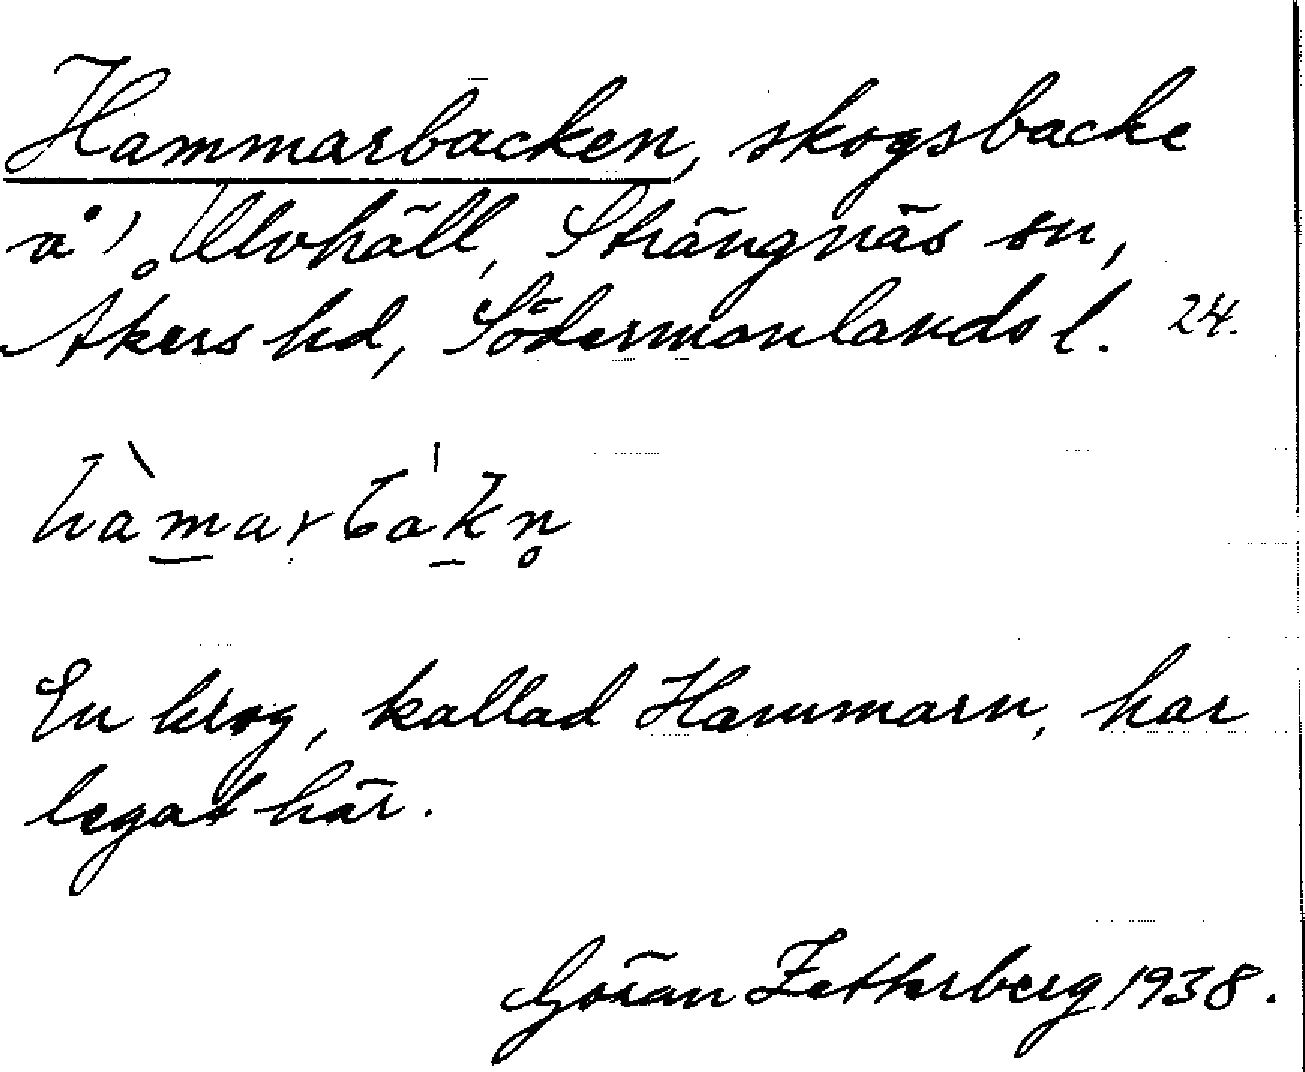 Hammarbacken, skogsbacke
å Ulvhäll, Strängnäs sn,
Åkers hd, Södermanlands l. 24.
hàmarbákn̥
En krog, kallad Hammarn, har
legat här.
Göran Zetterberg 1938.